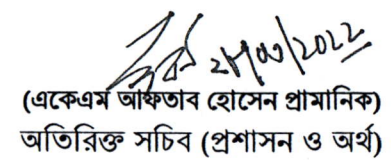 ২৮/০৩/২০২২
(একেএম আফতাব হোসেন প্রামানিক)
অতিরিক্ত সচিব (প্রশাসন ও অর্থ)